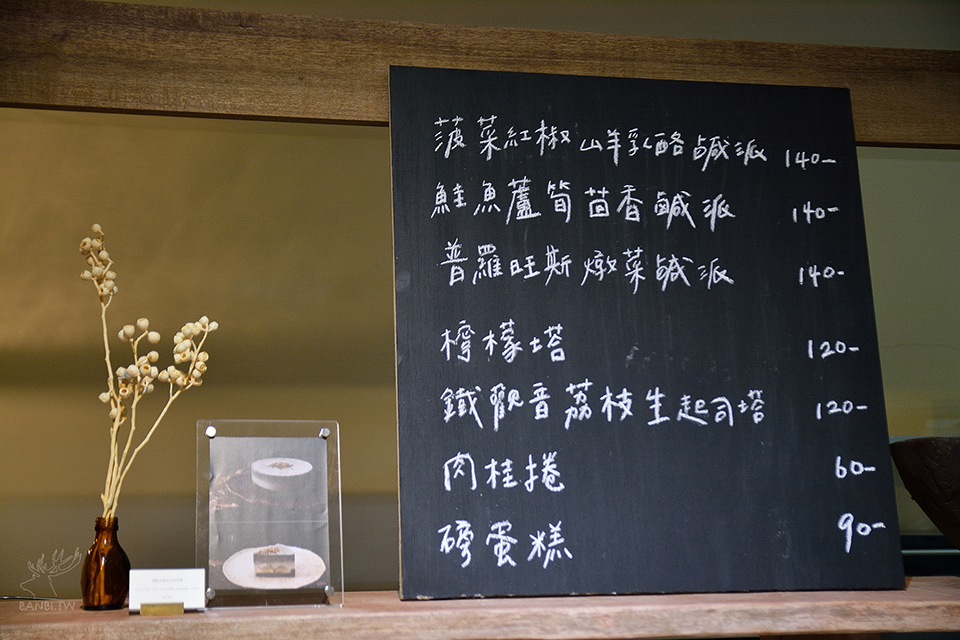 菠菜紅椒山羊乳酪鹹派 140-
鮭魚蘆筍茴香鹹派 140-
普羅旺斯燉菜鹹派 140-
檸檬塔 120-
鐵觀音荔枝生起司塔 120-
肉桂捲 60-
磅蛋糕 90-
BANBI.TW